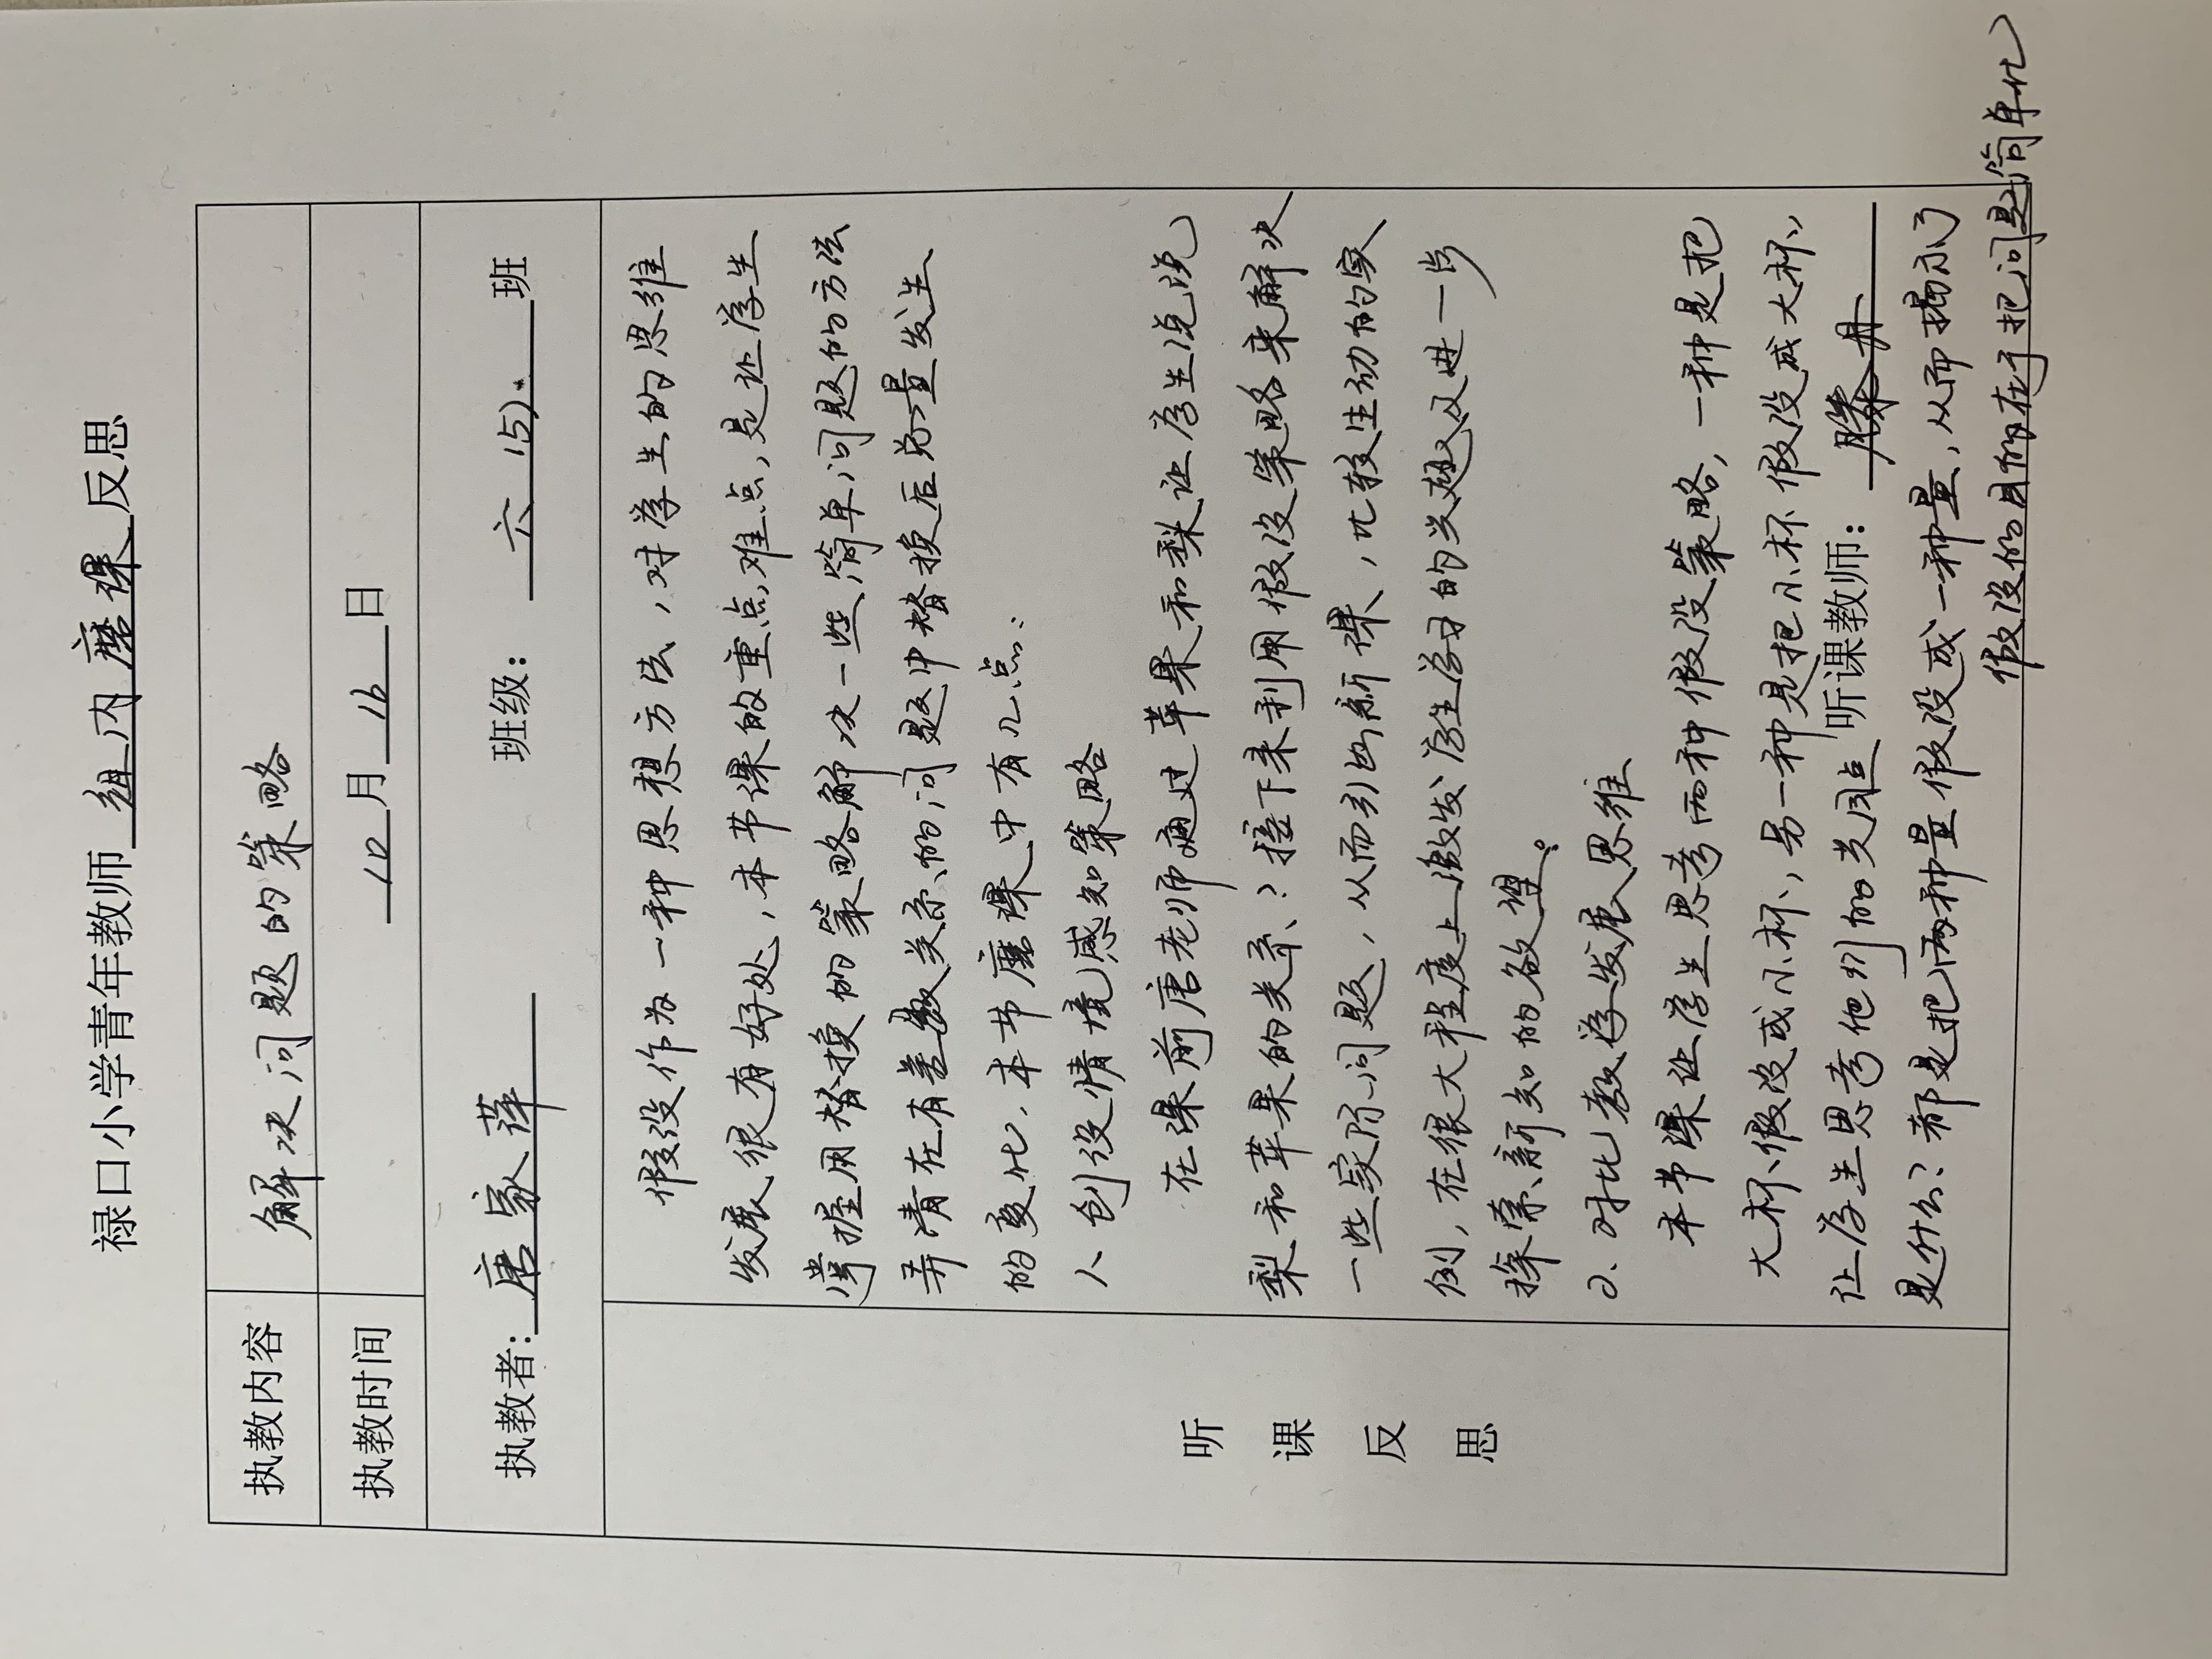 禄口小学青年教师组内磨课反思
执教内容 解决问题的策略
执教时间 10月16日
执教者:唐家萍 班级：六(5).班
听课反思
假设作为一种思想方法,对学生的思维
发展很有好处,本节课的重点难点,是让学生
掌握用替换的策略解决一些简单问题的方法
弄清在有差数关系的问题中替换后总量发生
的变化.本节磨课中有几点:
1、创设情境感知策略
在课前唐老师通过苹果和梨让学生说说
梨和苹果的关系?接下来利用假设策略来解决
一些实际问题,从而引出新课,比较生动的实
例,在很大程度上激发学生学习的兴趣及进一步
探索新知的欲望。
2、对比教学发展思维
本节课让学生思考两种假设策略,一种是把
大杯假设成小杯,另一种是把小杯假设成大杯,
让学生思考他们的共同点
听课教师：滕丹
是什么?都是把两种量假设成一种量,从而揭示了
假设的目的在于把问题简单化